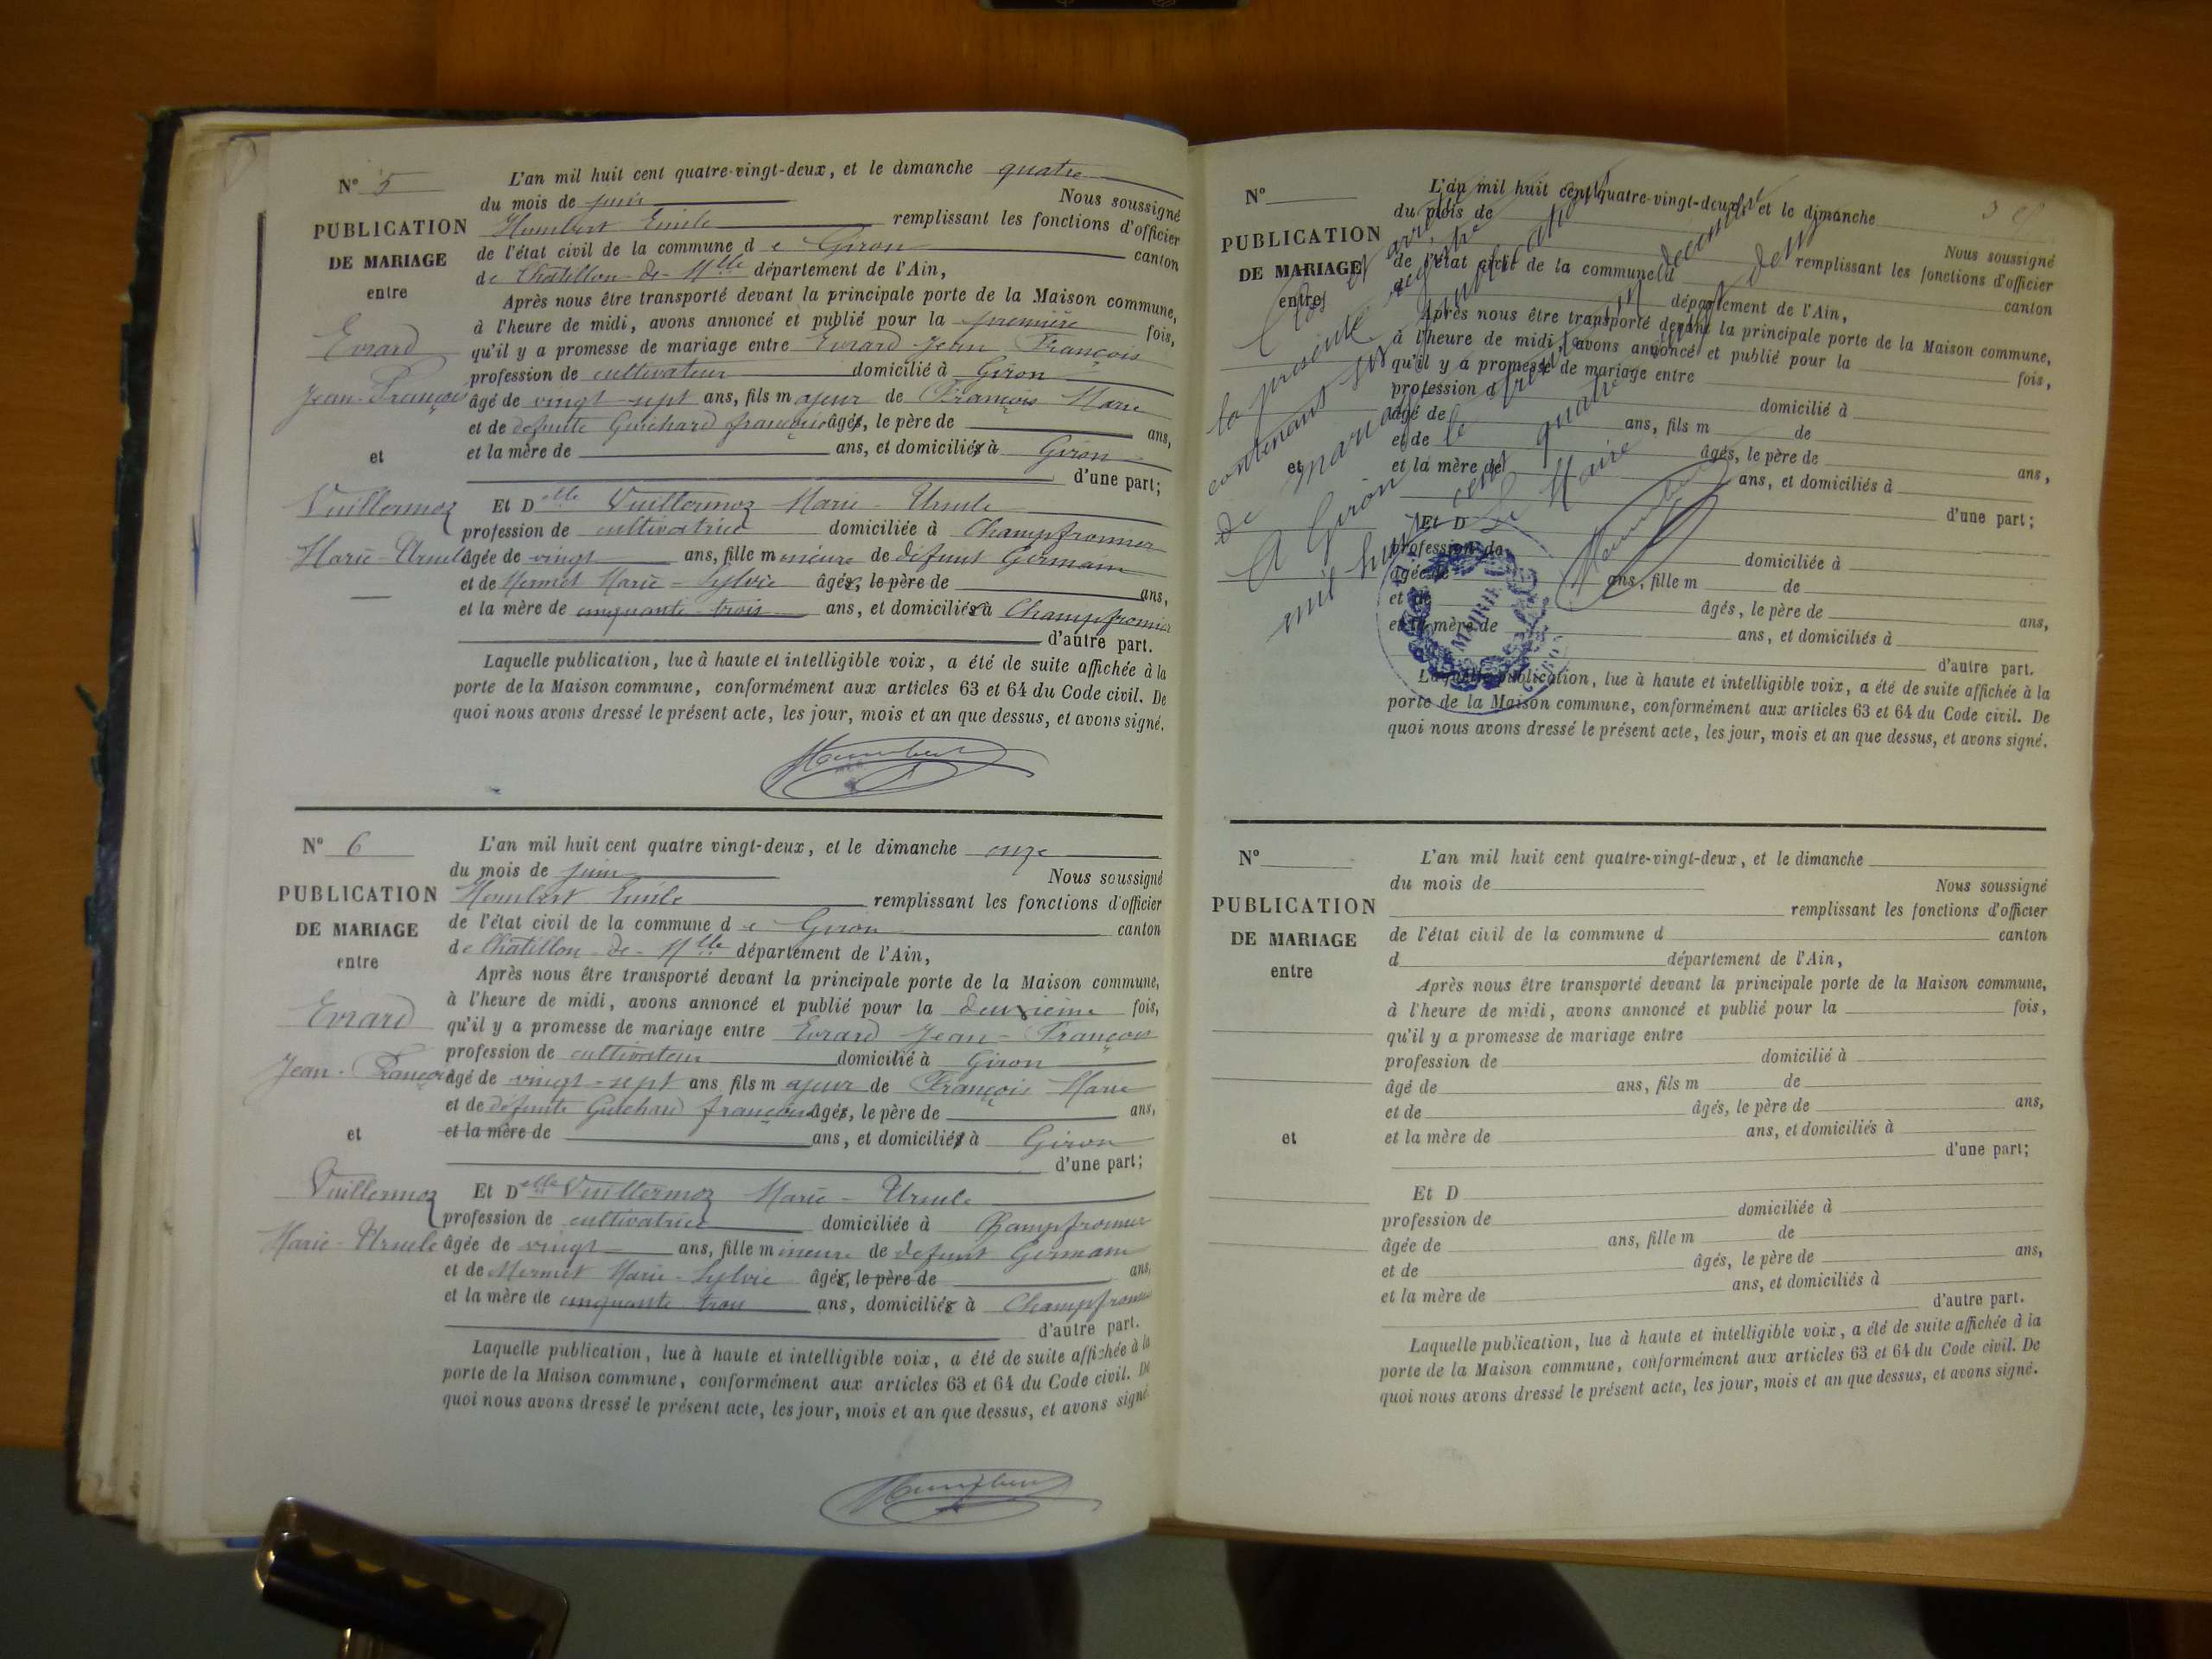 N° 5
PUBLICATION
DE MARIAGE
entre
Evrard
Jean-François
et
Vuillermoz
Marie-Ursule
L'an mil huit cent quatre-vingt-deux, et le dimanche quatre
du mois de juin Nous soussigné
Humbert Emile remplissant les fonctions d'officier
de l'état civil de la commune de Giron canton
de Châtillon-de-Mlle département de l'Ain,
Après nous être transporté devant la principale porte de la Maison commune,
à l'heure de midi, avons annoncé et publié pour la première fois,
qu'il y a promesse de mariage entre Evrard Jean François
profession de cultivateur domicilié à Giron
âgé de vingt-sept ans, fils majeur de François Marie
et de defunte Guichard françoise âgés, le père de ans,
et la mère de ans, et domiciliés à Giron
d'une part;
Et Delle Vuillermoz Marie-Ursule
profession de cultivatrice domiciliée à Champfromier
âgée de vingt ans, fille mineure de défunt Germain
et de Mermet Marie-Sylvie âgés, le père de ans,
et la mère de cinquante-trois ans, et domiciliés à Champfromier
d'autre part.
Laquelle publication, lue à haute et intelligible voix, a été de suite affichée à la
porte de la Maison commune, conformément aux articles 63 et 64 du Code civil. De
quoi nous avons dressé le présent acte, les jour, mois et an que dessus, et avons signé.
Humbert
N° 6
PUBLICATION
DE MARIAGE
entre
Evrard
Jean-François
et
Vuillermoz
Marie-Ursule
L'an mil huit cent quatre vingt-deux, et le dimanche onze
du mois de juin Nous soussigné
Humbert Emile remplissant les fonctions d'officier
de l'état civil de la commune de Giron canton
de Châtillon-de-Mlle département de l'Ain,
Après nous être transporté devant la principale porte de la Maison commune,
à l'heure de midi, avons annoncé et publié pour la deuxième fois,
qu'il y a promesse de mariage entre Evrard Jean-François
profession de cultivateur domicilié à Giron
âgé de vingt-sept ans, fils majeur de François Marie
et de défunte Guichard françoise âgés, le père de ans,
et la mère de ans, et domiciliés à Giron
d'une part;
Et Delle Vuillermoz Marie-Ursule
profession de cultivatrice domiciliée à Champfromier
âgée de vingt ans, fille mineure de defunt Germain
et de Mermet Marie-Sylvie âgés, le père de ans,
et la mère de cinquante trois ans, domiciliés à Champfromier
d'autre part.
Laquelle publication, lue à haute et intelligible voix, a été de suite affichée à la
porte de la Maison commune, conformément aux articles 63 et 64 du Code civil. De
quoi nous avons dressé le présent acte, les jour, mois et an que dessus, et avons signé.
Humbert
N°
PUBLICATION
DE MARIAGE
entre
et
L'an mil huit cent quatre-vingt-deux, et le dimanche
du mois de Nous soussigné
remplissant les fonctions d'officier
de l'état civil de la commune d canton
d département de l'Ain,
Après nous être transporté devant la principale porte de la Maison commune,
à l'heure de midi, avons annoncé et publié pour la fois,
qu'il y a promesse de mariage entre
profession d domicilié à
âgé de ans, fils m de
et de âgés, le père de ans,
et la mère de ans, et domiciliés à
d'une part;
Et D
profession de domiciliée à
âgée de ans, fille m de
et de âgés, le père de ans,
et la mère de ans, et domiciliés à
d'autre part.
Laquelle publication, lue à haute et intelligible voix, a été de suite affichée à la
porte de la Maison commune, conformément aux articles 63 et 64 du Code civil. De
quoi nous avons dressé le présent acte, les jour, mois et an que dessus, et avons signé.
Clos et arrêté
le présent registre
contenant six publications
de mariage
A Giron le trente un décembre
mil huit cent quatre vingt deux
Le Maire
Humbert
MAIRIE
N°
PUBLICATION
DE MARIAGE
entre
et
L'an mil huit cent quatre-vingt-deux, et le dimanche
du mois de Nous soussigné
remplissant les fonctions d'officier
de l'état civil de la commune d canton
d département de l'Ain,
Après nous être transporté devant la principale porte de la Maison commune,
à l'heure de midi, avons annoncé et publié pour la fois,
qu'il y a promesse de mariage entre
profession de domicilié à
âgé de ans, fils m de
et de âgés, le père de ans,
et la mère de ans, et domiciliés à
d'une part;
Et D
profession de domiciliée à
âgée de ans, fille m de
et de âgés, le père de ans,
et la mère de ans, et domiciliés à
d'autre part.
Laquelle publication, lue à haute et intelligible voix, a été de suite affichée à la
porte de la Maison commune, conformément aux articles 63 et 64 du Code civil. De
quoi nous avons dressé le présent acte, les jour, mois et an que dessus, et avons signé.